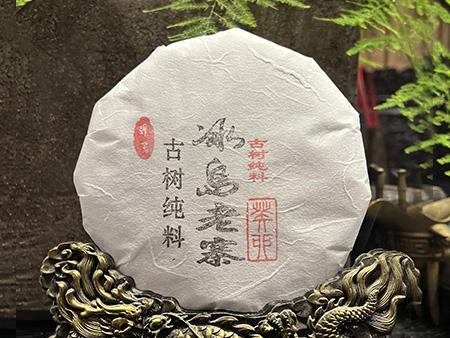 古树纯料
冰島老寨
古树纯料